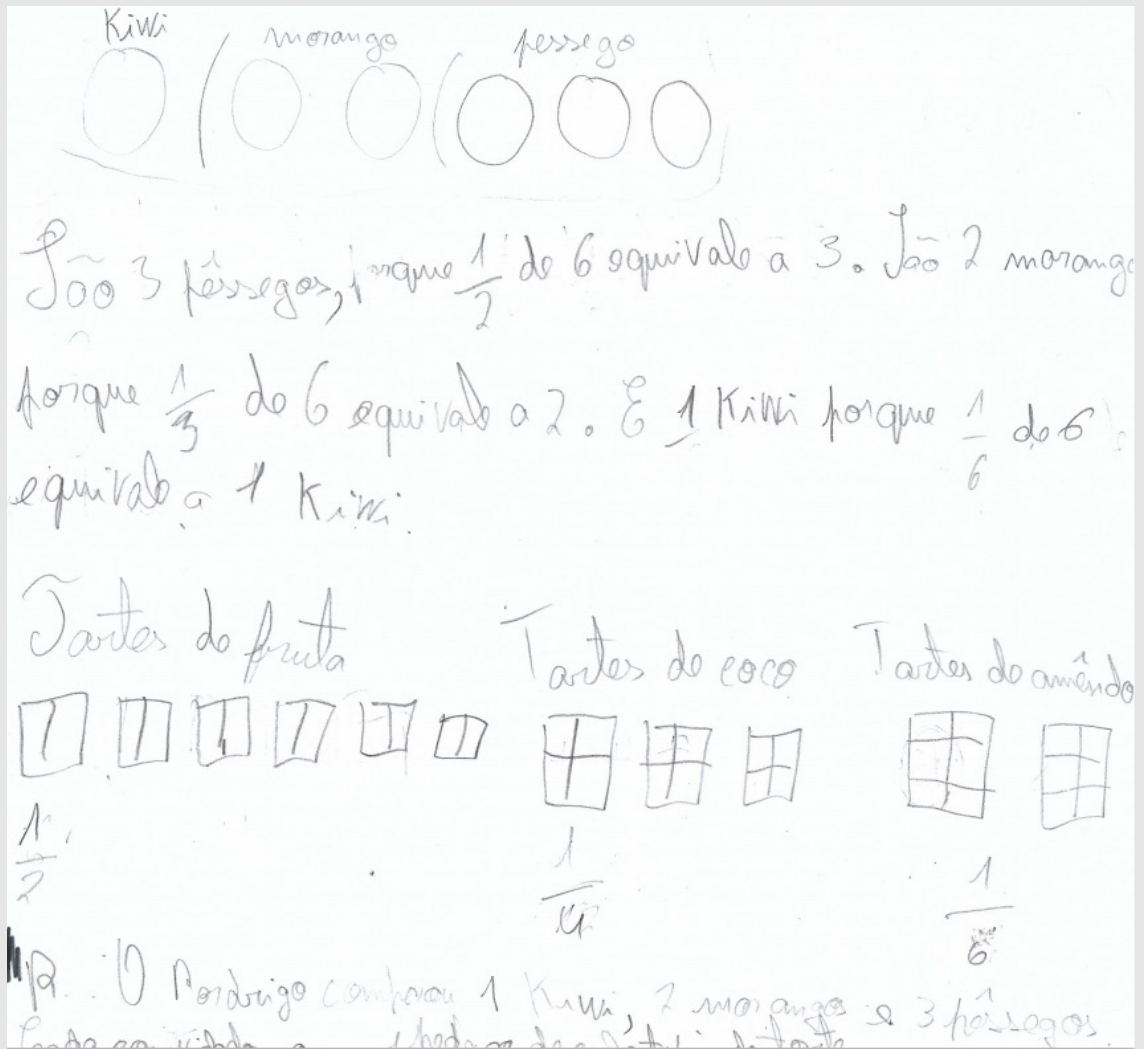 Kiwi morango pessego
São 3 pêssegos, porque 1/2 de 6 equivale a 3. São 2 morango
porque 1/3 de 6 equivale a 2. E 1 Kiwi porque 1/6 de 6
equivale a 1 Kiwi.
Tartes de fruta Tartes de coco Tartes de amêndo
1/2 1/4 1/6
R. O Rordrigo comprou 1 Kiwi, 2 morangos e 3 pêssegos.